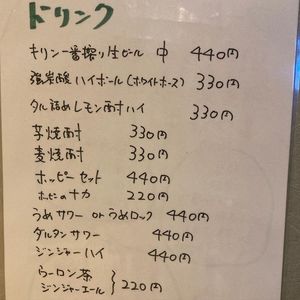 ドリンク
キリン一番搾り生ビール 中 440円
強炭酸ハイボール(ホワイトホース) 330円
タル詰めレモン酎ハイ 330円
芋焼酎 330円
麦焼酎 330円
ホッピーセット 440円
ホッピーのナカ 220円
うめサワー orうめロック 440円
ダルタンサワー 440円
ジンジャーハイ 440円
ウーロン茶
ジンジャーエール } 220円